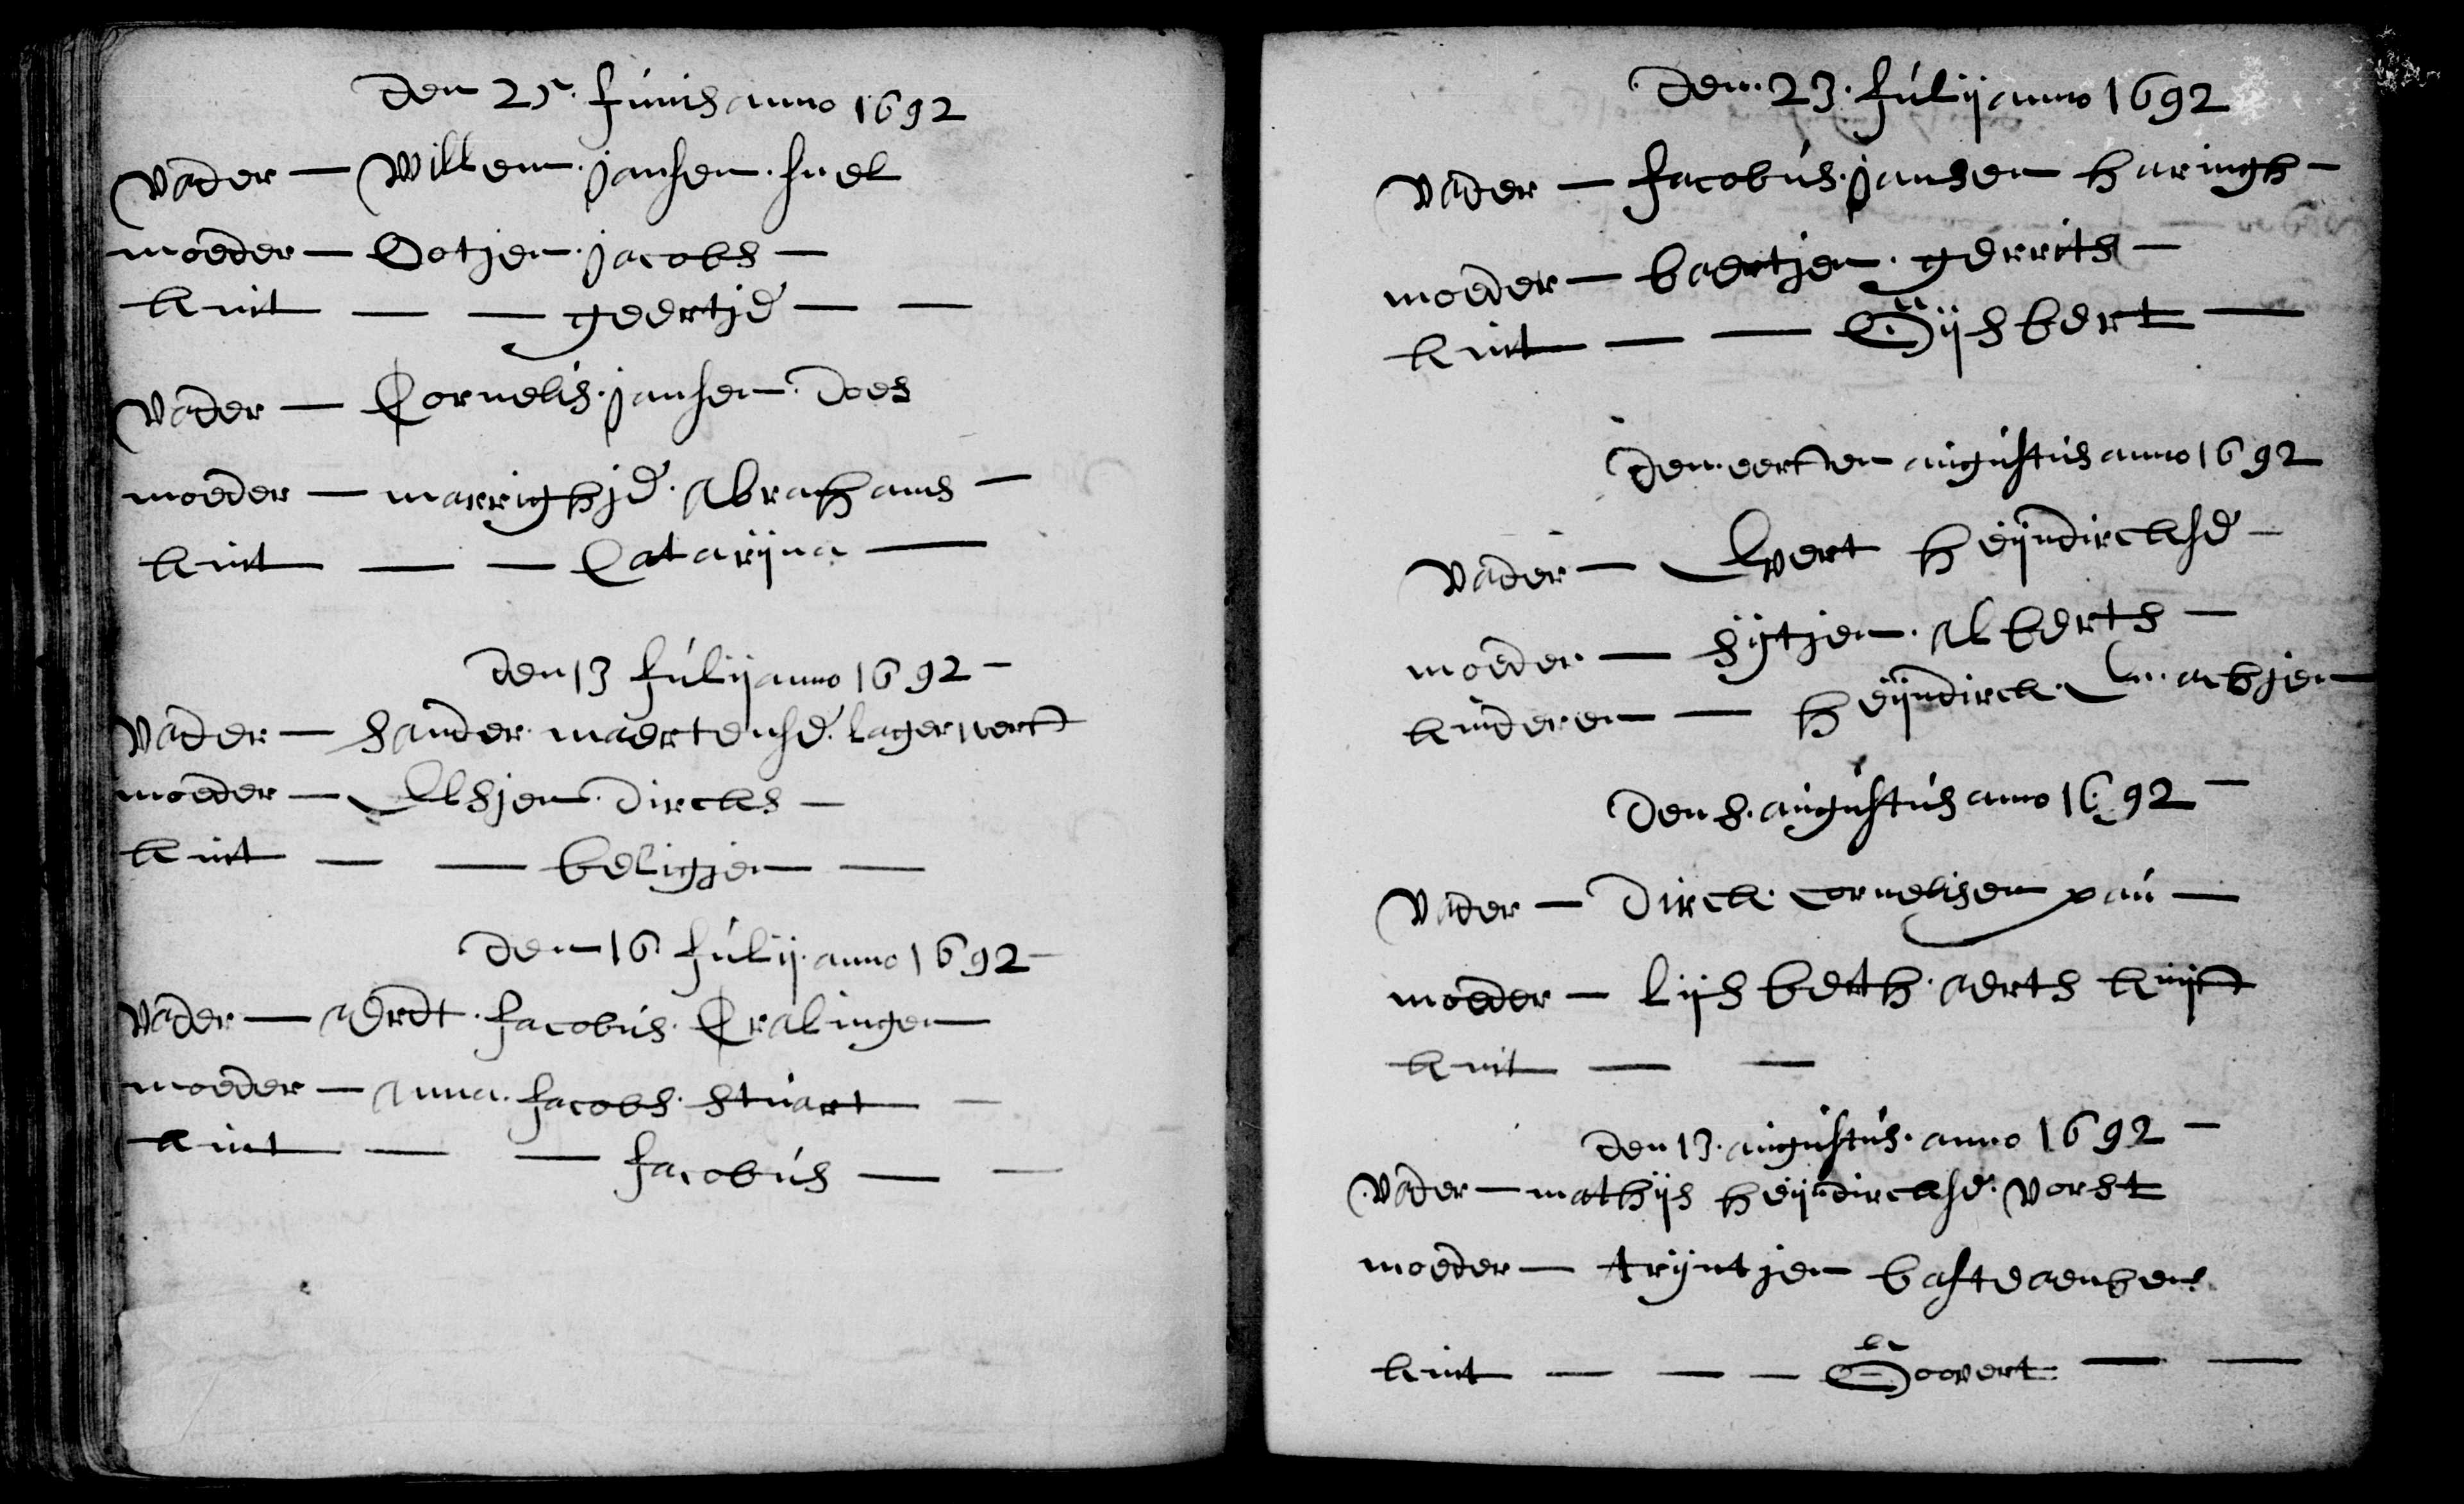 den 25. Junis anno 1692
Vader — Willem jansen snel
moeder — Ootjen jacobs —
kint — — geertje — —
Vader — Cornelis jansen does
moeder — marrighje Abrahams —
kint — — Catarijna —
den 13 Julij anno 1692 —
Vader — sander maertense lagerwert
moeder — Elsjen dircks —
kint — — beligjen —
den 16 Julij anno 1692 —
Vader — aerdt Jacobus Cralingen
moeder — Anna Jacobs stuart —
kint — — Jacobus — —
den 23. Julij anno 1692
Vader — Jacobus jansen haringh —
moeder — baertjen gerrits —
kint — — Gijsbert —
den eersten augustus anno 1692
Vader — Evert heijndirckse —
moeder — sijtjen Alberts —
kinderen — heijndirck
den 8. augustus anno 1692 —
Vader — dirck cornelisen pau —
moeder — lijsbeth aerts
kint — —
den 13. augustus anno 1692 —
Vader — mathijs heijndirckse Vorst
moeder — trijntjen
kint — — — Govert — —